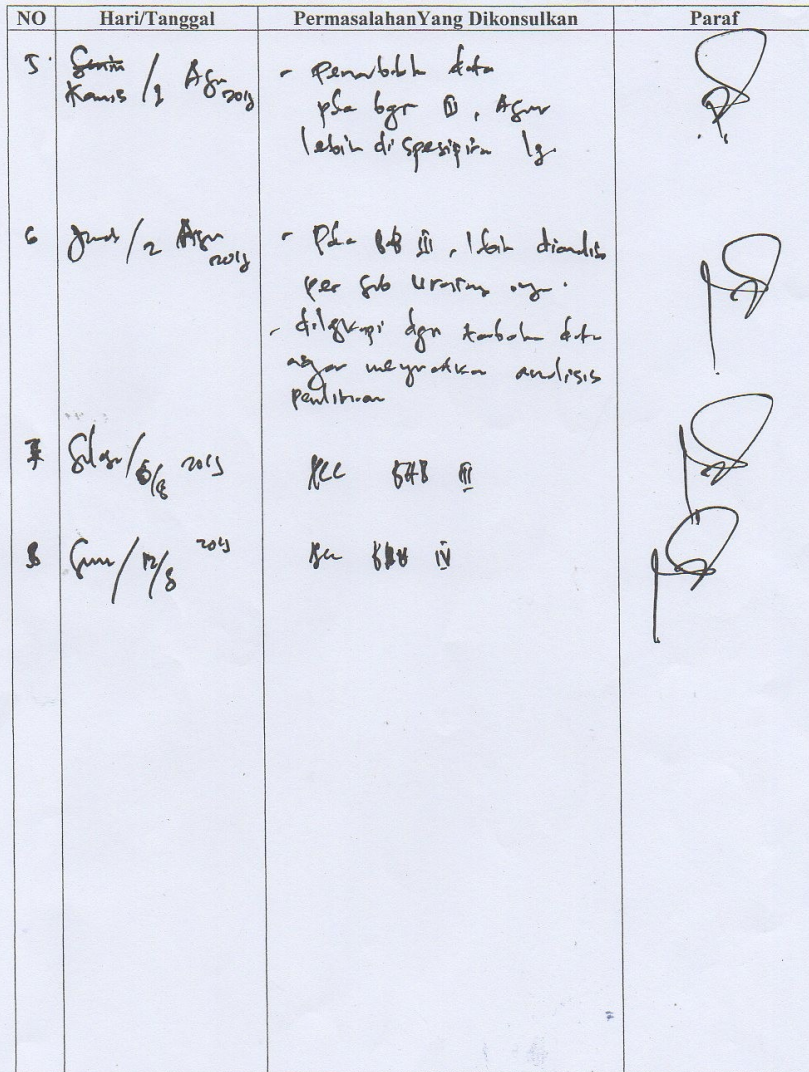 NO Hari/Tanggal PermasalahanYang Dikonsulkan Paraf
5. Senin
Kamis / 1 Agu 2013
- Penambah data
pda bgn III, Agar
lebih di spesipikn lg.
6 / 2 Agu 2013
- Pda bab III, lebih dianalisis
per sub uraian nya.
- dilgkapi dgn tambah data
agar analisis
7 Selasa / 6/8 2013
Acc BAB III
8 Senin / 12/8 2013
Acc BAB IV